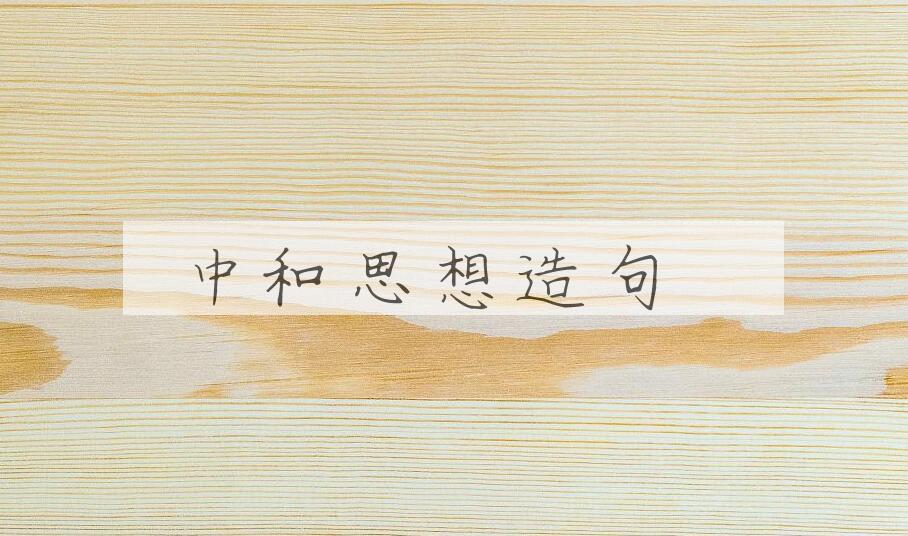 中和思想造句